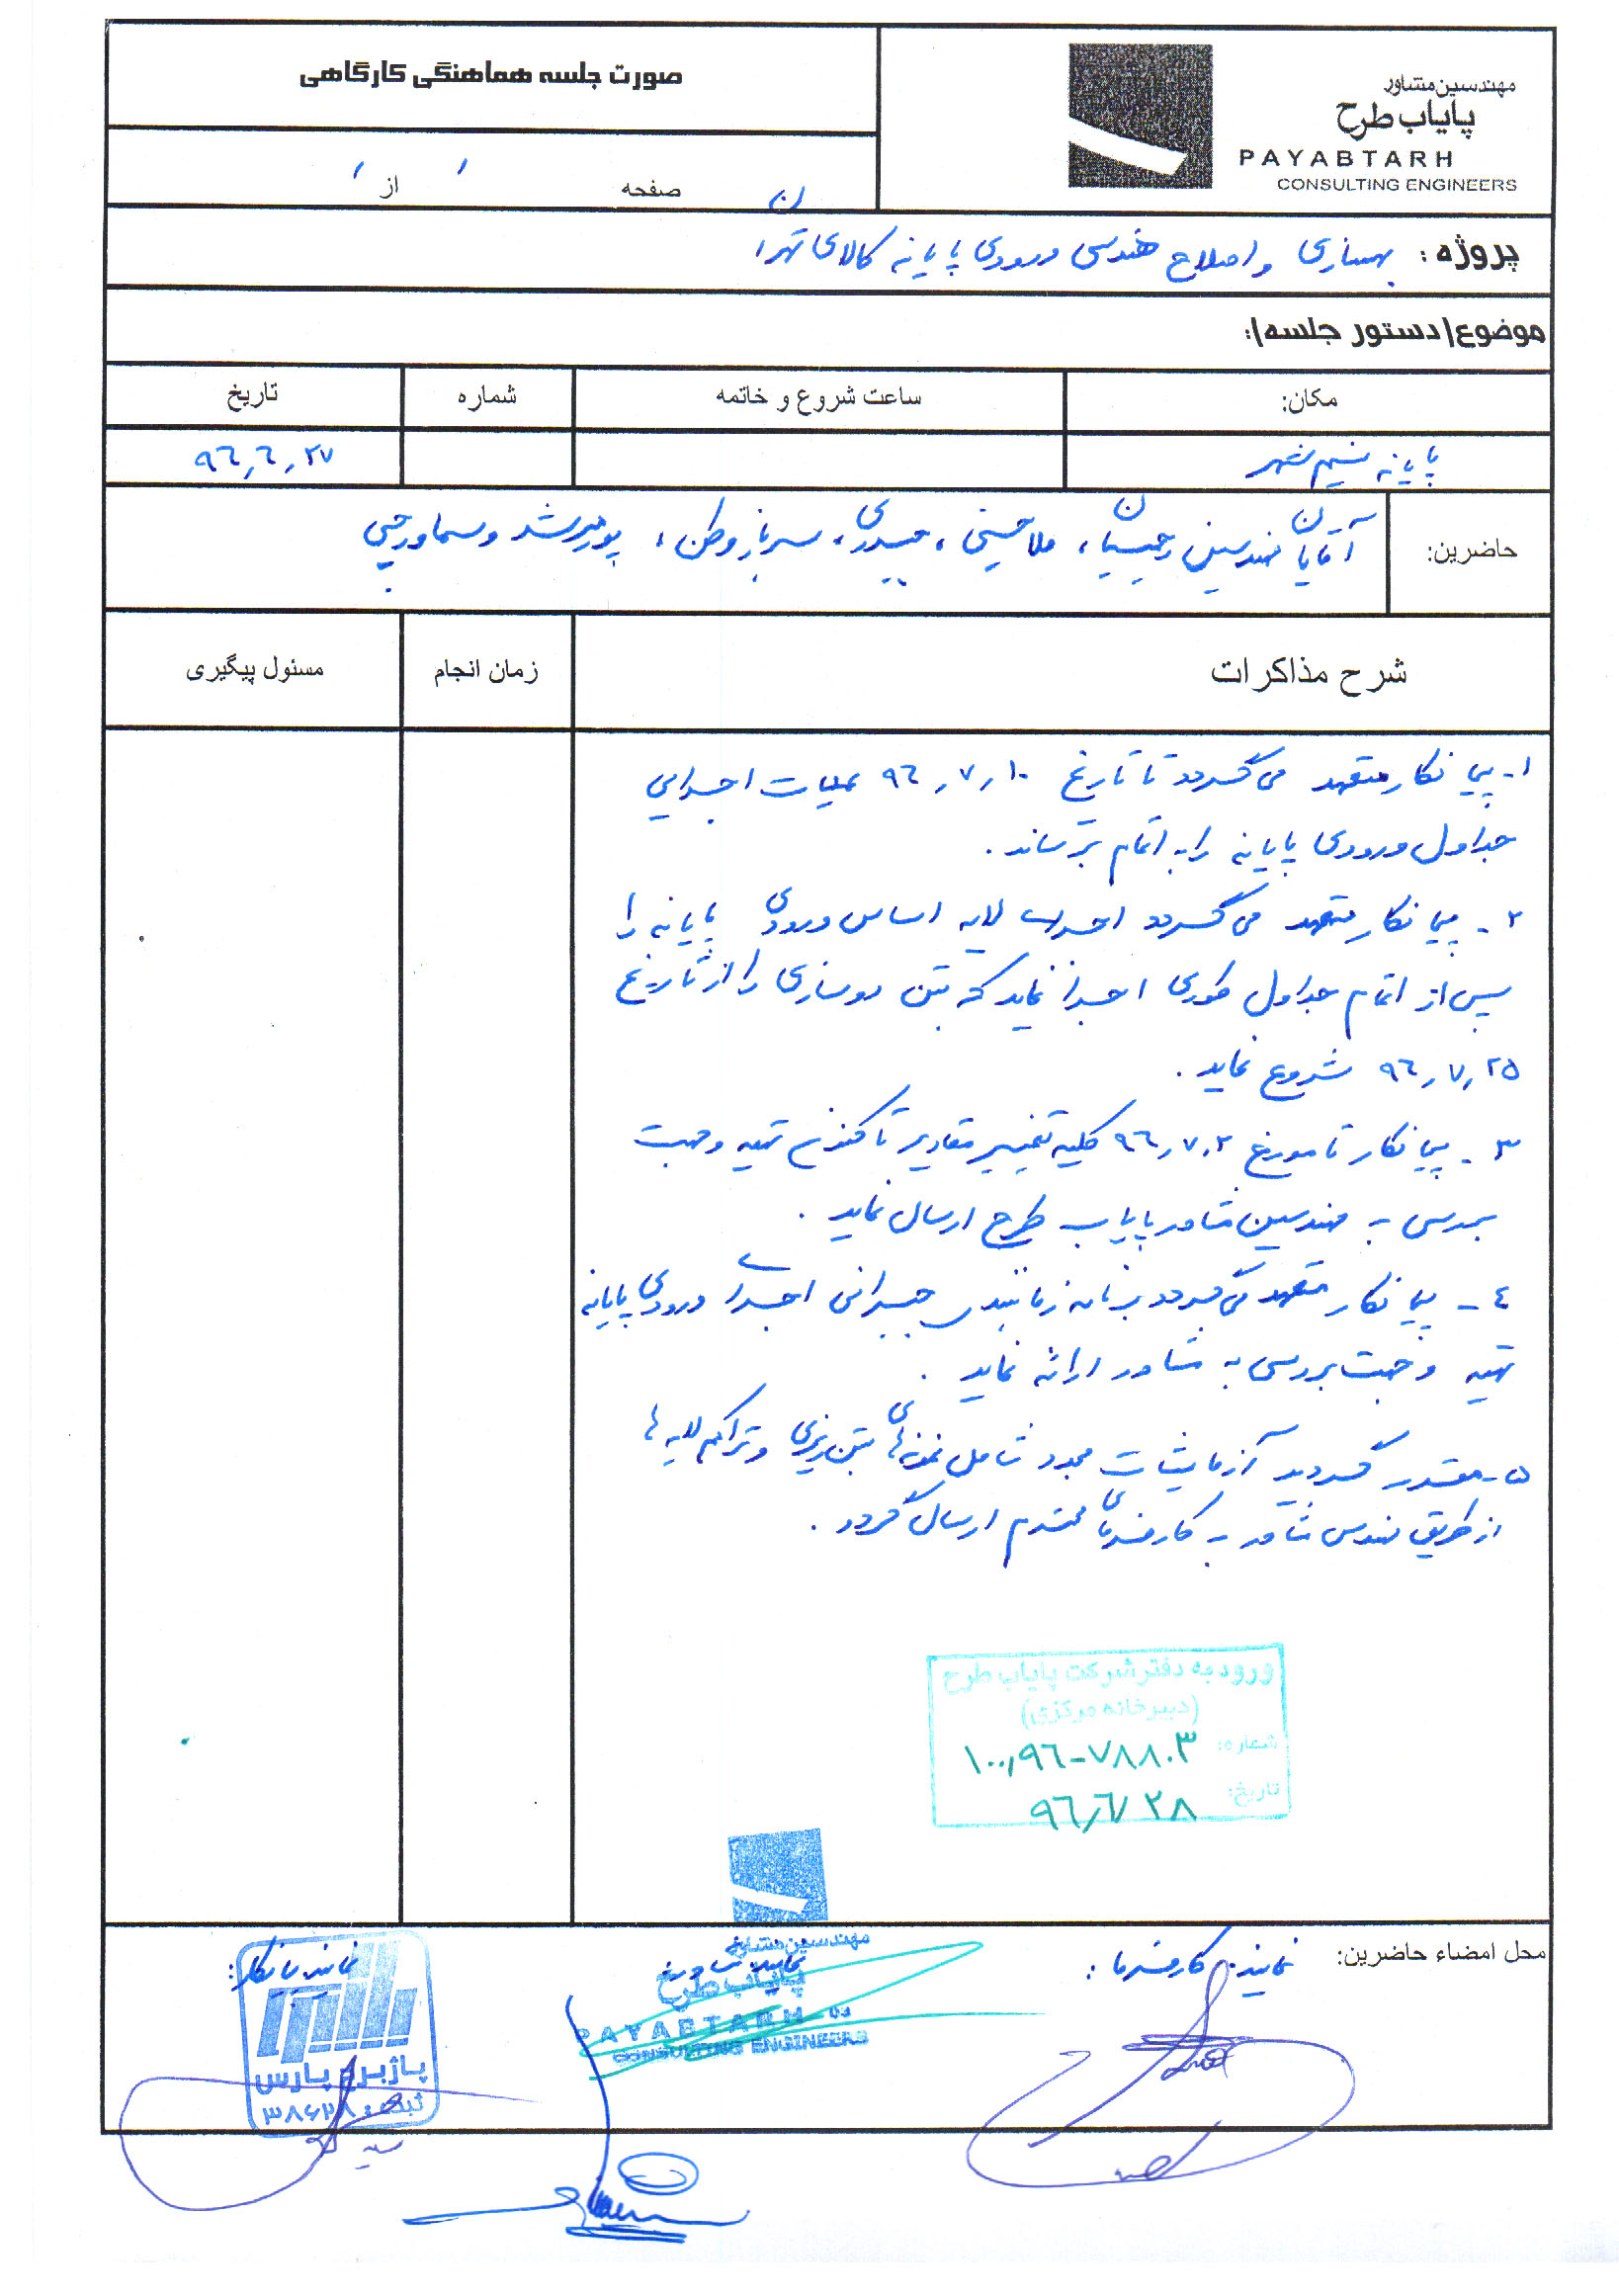 مهندسین مشاور
پایاب طرح
PAYABTARH
CONSULTING ENGINEERS
صورت جلسه هماهنگی کارگاهی
صفحه ۱ از ۱
پروژه : بهسازی و اصلاح هندسی ورودی پایانه کالای تهران
موضوع(دستور جلسه):
مکان: ساعت شروع و خاتمه شماره تاریخ
پایانه نسیم شهر ۹۶٫۶٫۲۷
حاضرین: آقایان مهندسین رحیمیان، ملاحسینی، حیدری، سرباز وطن، پورمرشد و سماورچی
شرح مذاکرات زمان انجام مسئول پیگیری
۱- پیمانکار متعهد می گردد تا تاریخ ۹۶٫۷٫۱۰ عملیات اجرایی
جداول ورودی پایانه را به اتمام برساند.
۲- پیمانکار متعهد می گردد اجرای لایه اساس ورودی پایانه را
پس از اتمام جداول طوری اجرا نماید که بتن روسازی را از تاریخ
۹۶٫۷٫۲۵ شروع نماید.
۳- پیمانکار تا مورخ ۹۶٫۷٫۲ کلیه تغییر مقادیر تاکنون تهیه و جهت
بررسی به مهندسین مشاور پایاب طرح ارسال نماید.
۴- پیمانکار متعهد می گردد برنامه زمانبندی جبرانی اجرای ورودی پایانه
تهیه و جهت بررسی به مشاور ارائه نماید.
۵- مقرر گردید آزمایشات مجدد شامل نمونه های بتن ریزی و تراکم لایه ها
از طریق مهندس مشاور به کارفرمای محترم ارسال گردد.
ورود به دفتر شرکت پایاب طرح
(دبیرخانه مرکزی)
شماره: ۱۰۰٫۹۶-۷۸۸۰۳
تاریخ: ۹۶٫۶٫۲۸
محل امضاء حاضرین: نماینده کارفرما : نماینده مشاور: نماینده پیمانکار:
مهندسین مشاور
پایاب طرح
PAYABTARH
CONSULTING ENGINEERS
پاژ برج پارس
ثبت: ۳۸۶۲۸